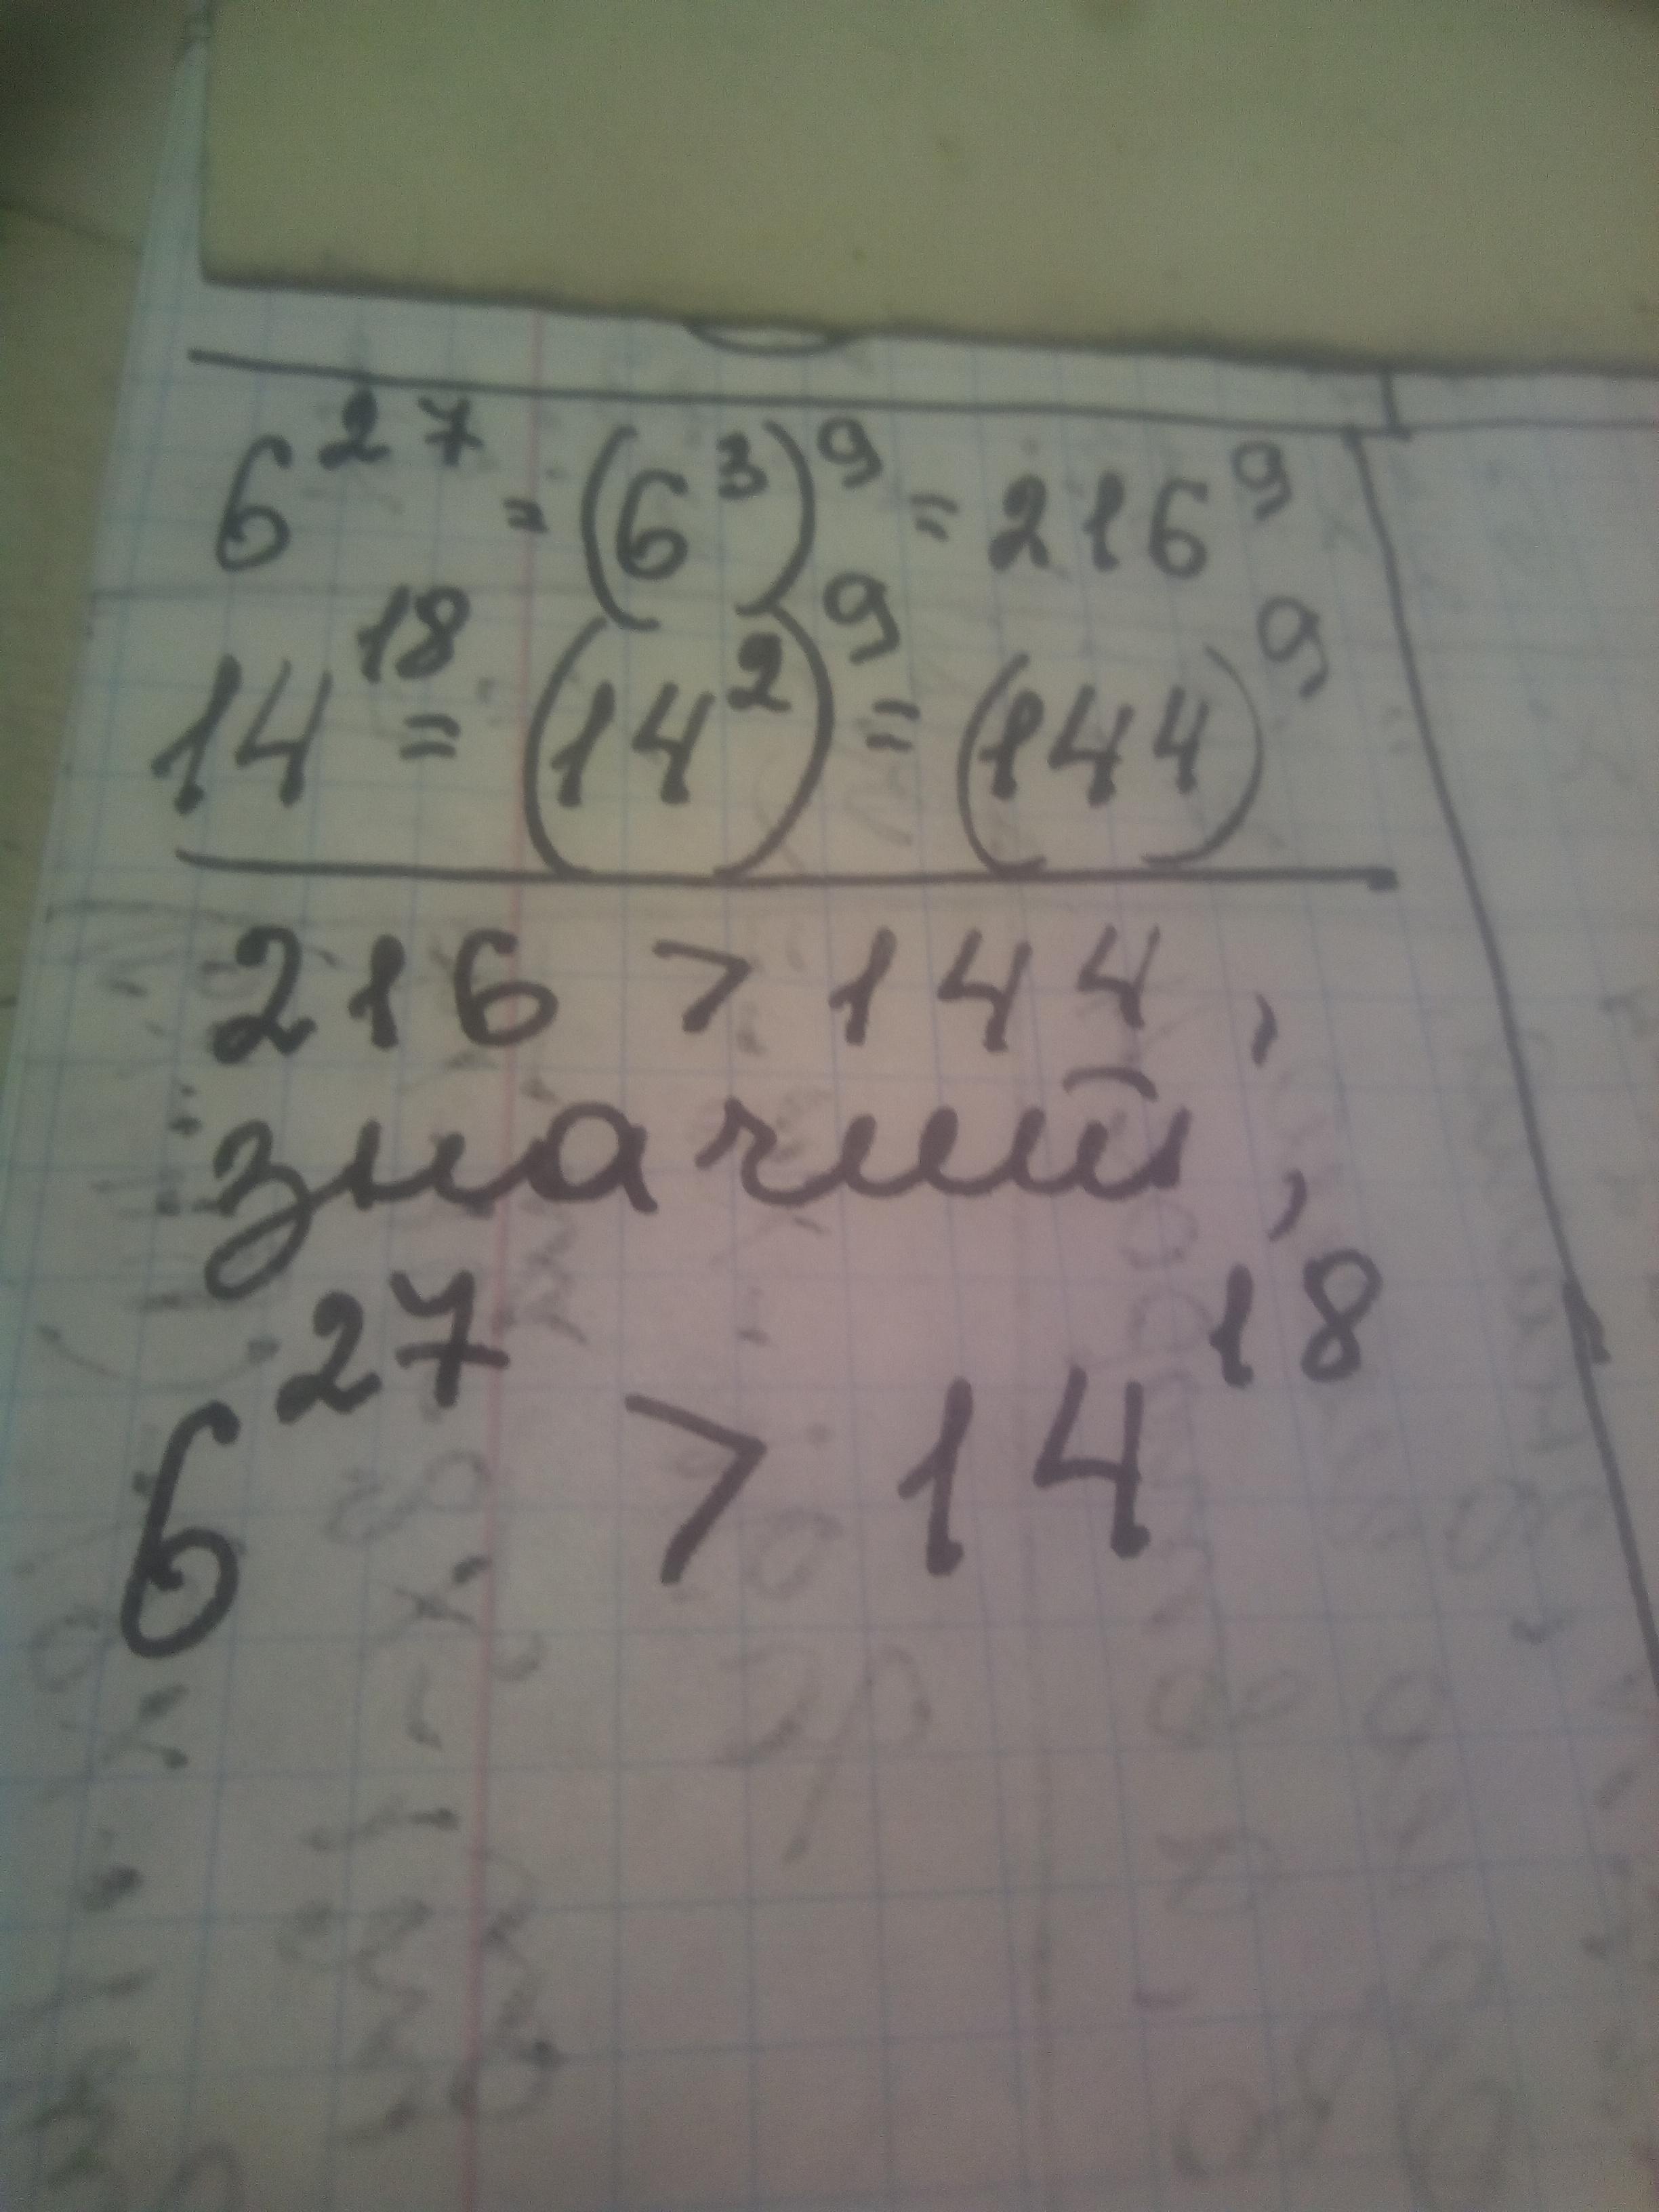 6²⁷ = (6³)⁹ = 216⁹
14¹⁸ = (14²)⁹ = (144)⁹
216 > 144,
значит,
6²⁷ > 14¹⁸